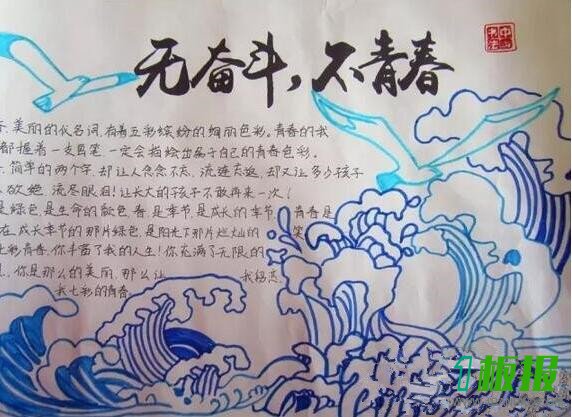 无奋斗，不青春
中国书法
春，美丽的代名词，有着五彩缤纷的绚丽色彩。青春的我
都握着一支画笔，一定会描绘出属于自己的青春色彩。
简单的两个字，却让人念念不忘，流连忘返，却又让多少孩子
欲绝，流尽眼泪！让长大的孩子不敢再来一次！
是绿色，是生命的颜色，春，是季节，是成长的季节，青春是
在成长季节的那片绿色，是阳光下那片灿烂的 笑
七彩青春，你丰富了我的人生！你充满了无限的
你是那么的美丽，那么让 我
我七彩的青春
板报